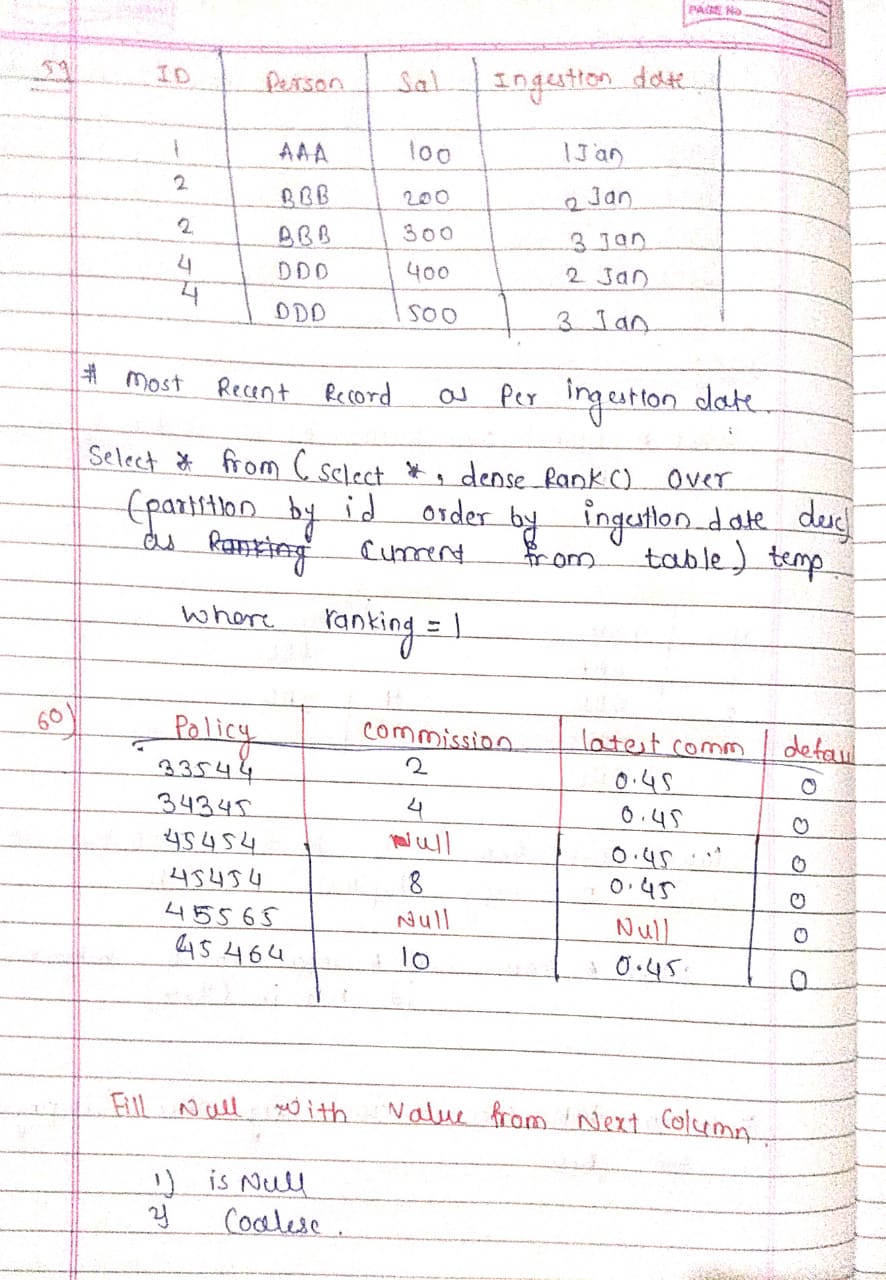 PAGE No.
59 ID Person Sal Ingestion date
1 AAA 100 1 Jan
2 BBB 200 2 Jan
2 BBB 300 3 Jan
4 DDD 400 2 Jan
4 DDD 500 3 Jan
# Most Recent Record as Per ingestion date.
Select * from (select *, dense Rank() over
(partition by id order by ingestion date desc)
as Ranking current from table) temp.
where ranking = 1
60) Policy commission latest comm defau
33544 2 0.45 0
34345 4 0.45 0
45454 Null 0.45 0
45454 8 0.45 0
45565 Null Null 0
45464 10 0.45 0
Fill Null with Value from Next Column.
1) is Null
2) Coalesc.